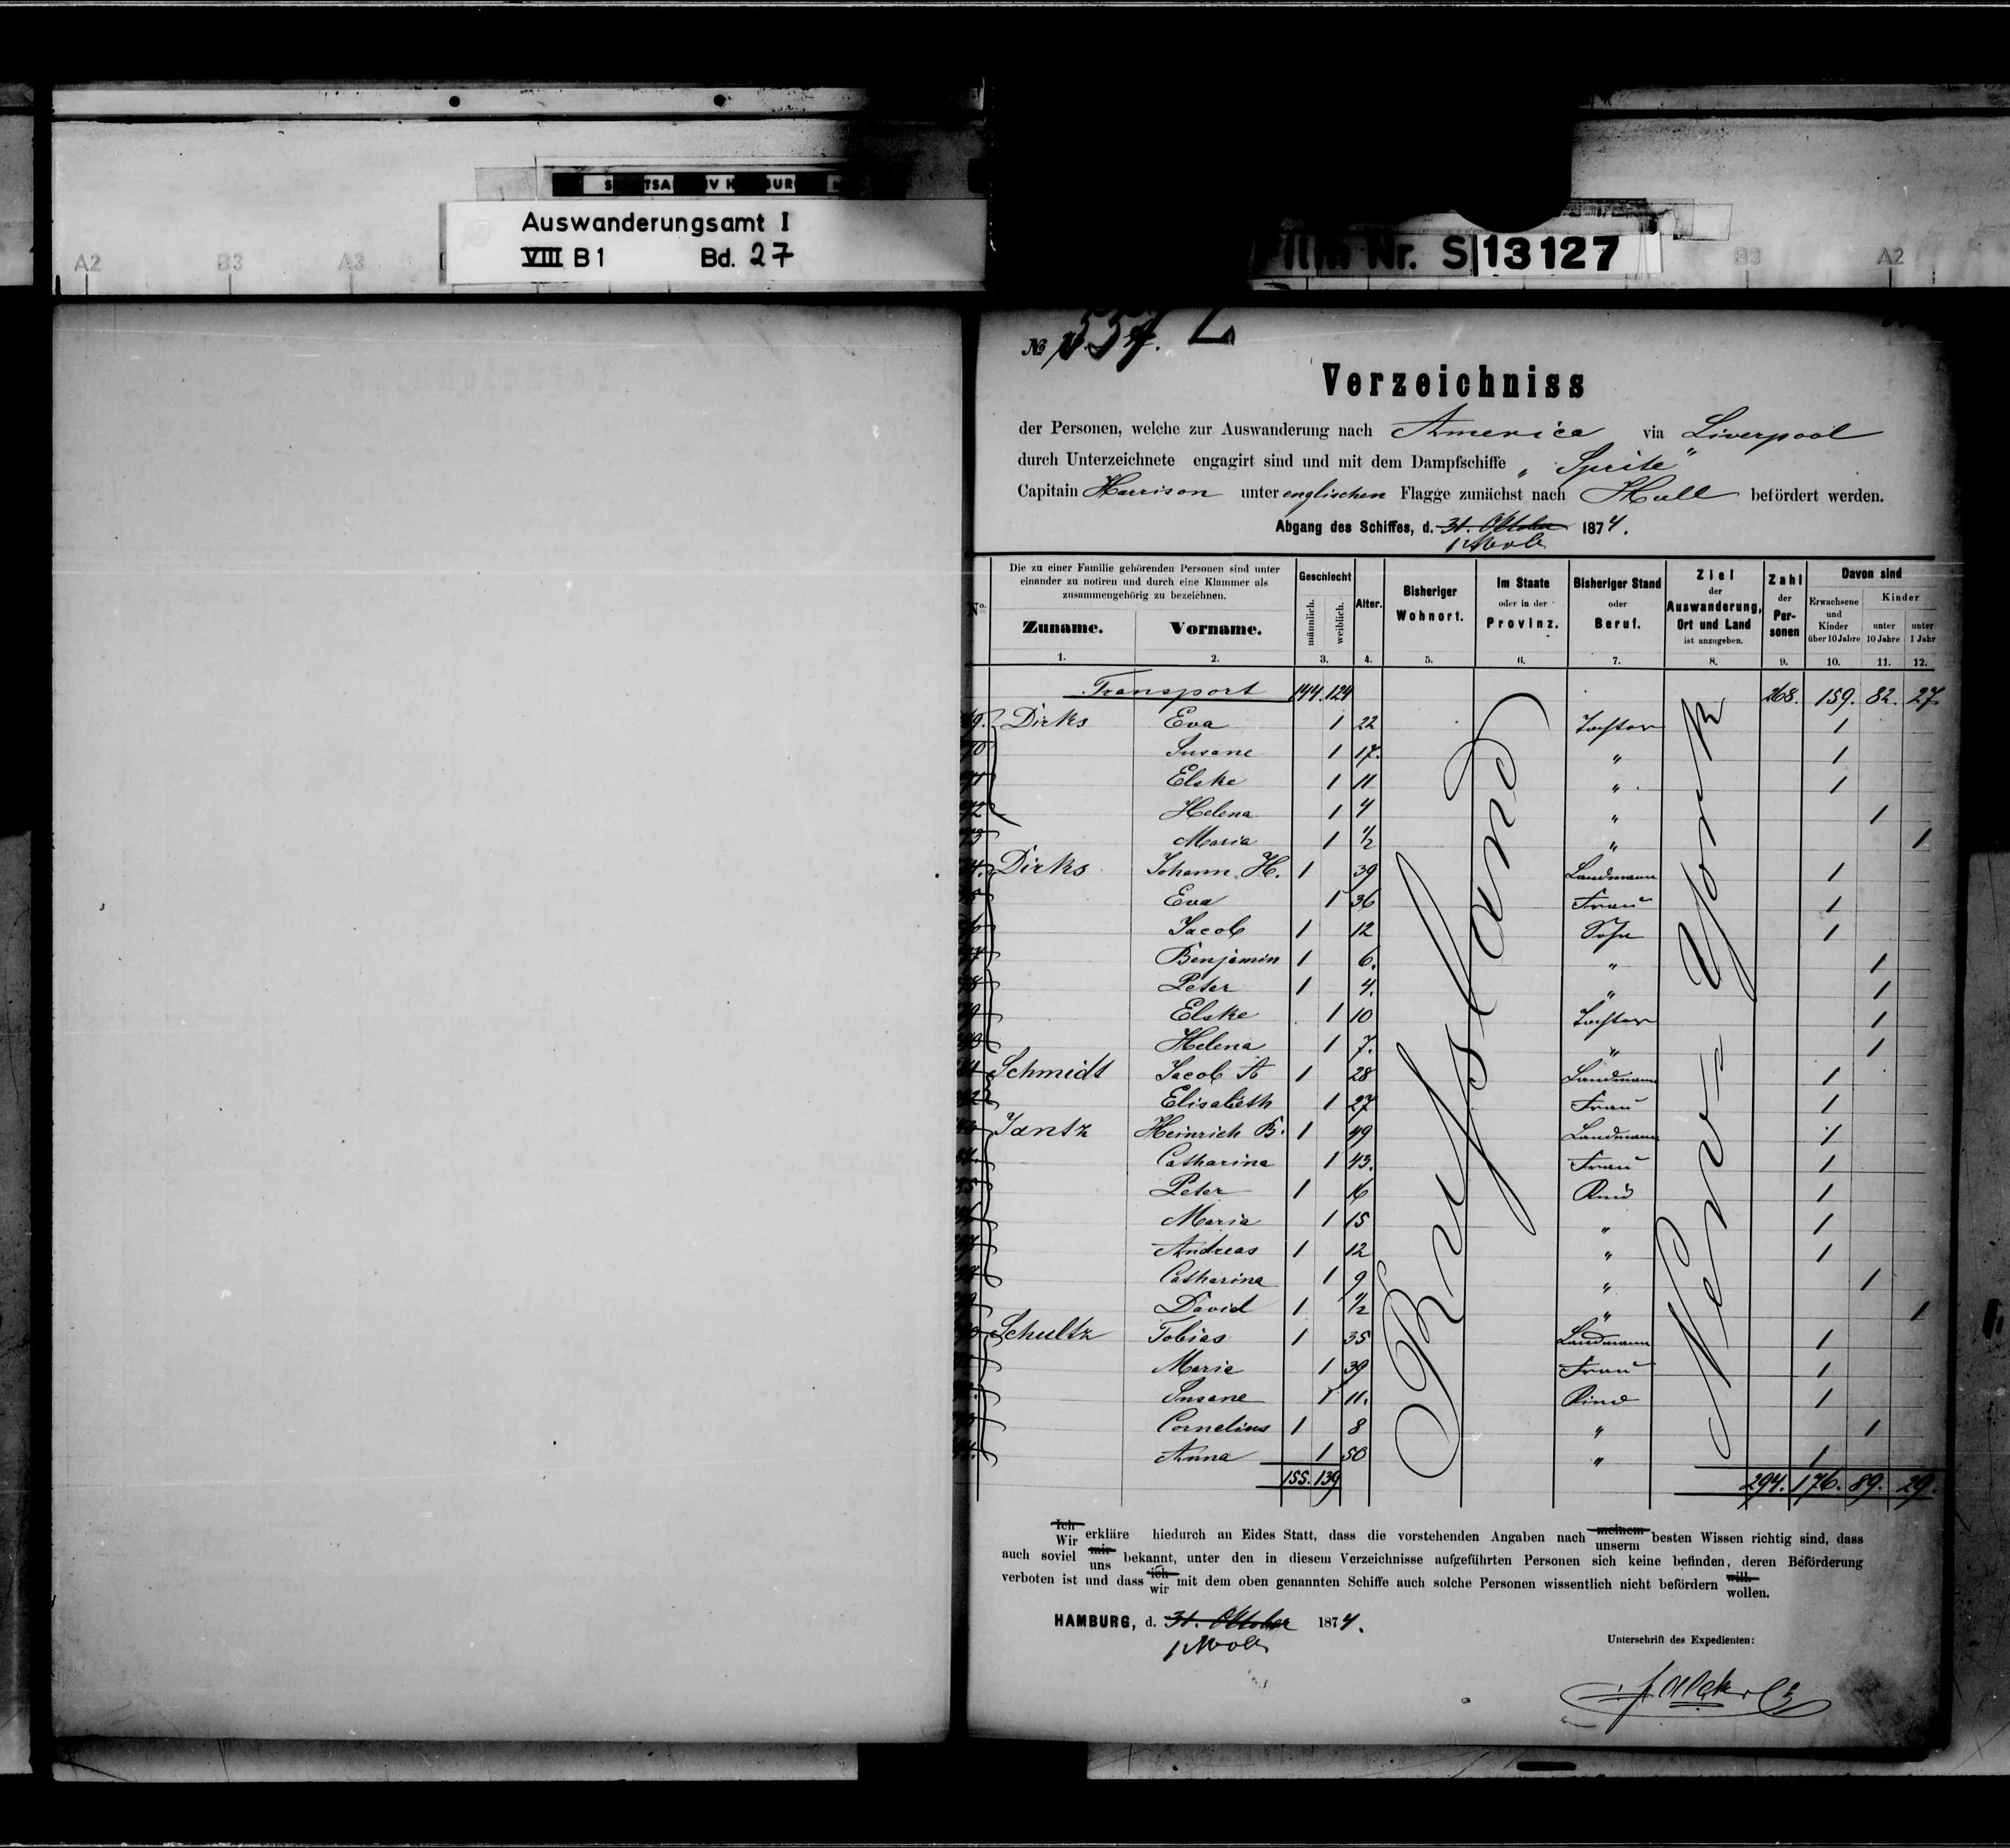 A2 B3 A3
Auswanderungsamt I
VIII B1 Bd. 27
Film Nr. S 13127
B3 A2
№ 554. L
Verzeichniss
der Personen, welche zur Auswanderung nach America via Liverpool
durch Unterzeichnete engagirt sind und mit dem Dampfschiffe „Sprite"
Capitain Harrison unter englischen Flagge zunächst nach Hull befördert werden.
Abgang des Schiffes, d. 31. Oktober 1874.
1 Novb
Die zu einer Familie gehörenden Personen sind unter einander zu notiren und durch eine Klammer als zusammengehörig zu bezeichnen.
No. Zuname. Vorname. Geschlecht männlich. weiblich. Alter. Bisheriger Wohnort. Im Staate oder in der Provinz. Bisheriger Stand oder Beruf. Ziel der Auswanderung, Ort und Land ist anzugeben. Zahl der Personen Davon sind Erwachsene und Kinder über 10 Jahre Kinder unter 10 Jahre unter 1 Jahr
1. 2. 3. 4. 5. 6. 7. 8. 9. 10. 11. 12.
Transport 144. 124 268. 159. 82. 27.
Dirks Eva 1 22 Tochter 1
Susane 1 17. " 1
Elske 1 11 " 1
Helena 1 4 " 1
Maria 1 1/2 " 1
Dirks Johann H. 1 39 Landmann 1
Eva 1 36 Frau 1
Jacob 1 12 Sohn 1
Benjamin 1 6. " 1
Peter 1 4. " 1
Elske 1 10 Tochter 1
Helena 1 7. " 1
Schmidt Jacob A 1 28 Landmann 1
Elisabeth 1 27 Frau 1
Jantz Heinrich B. 1 49 Landmann 1
Catharina 1 43. Frau 1
Peter 1 16 Kind 1
Maria 1 15 " 1
Andreas 1 12 " 1
Catharina 1 9 " 1
David 1 1/2 " 1
Schultz Tobias 1 35 Landmann 1
Maria 1 39 Frau 1
Susane 1 11. Kind 1
Cornelius 1 8 " 1
Anna 1 50 " 1
Rußland
New-York
155. 139 294. 176. 89. 29.
Ich Wir erkläre hiedurch an Eides Statt, dass die vorstehenden Angaben nach meinem unserm besten Wissen richtig sind, dass
auch soviel mir uns bekannt, unter den in diesem Verzeichnisse aufgeführten Personen sich keine befinden, deren Beförderung
verboten ist und dass ich wir mit dem oben genannten Schiffe auch solche Personen wissentlich nicht befördern will. wollen.
HAMBURG, d. 31. Oktober 1874.
1 Novb
Unterschrift des Expedienten: